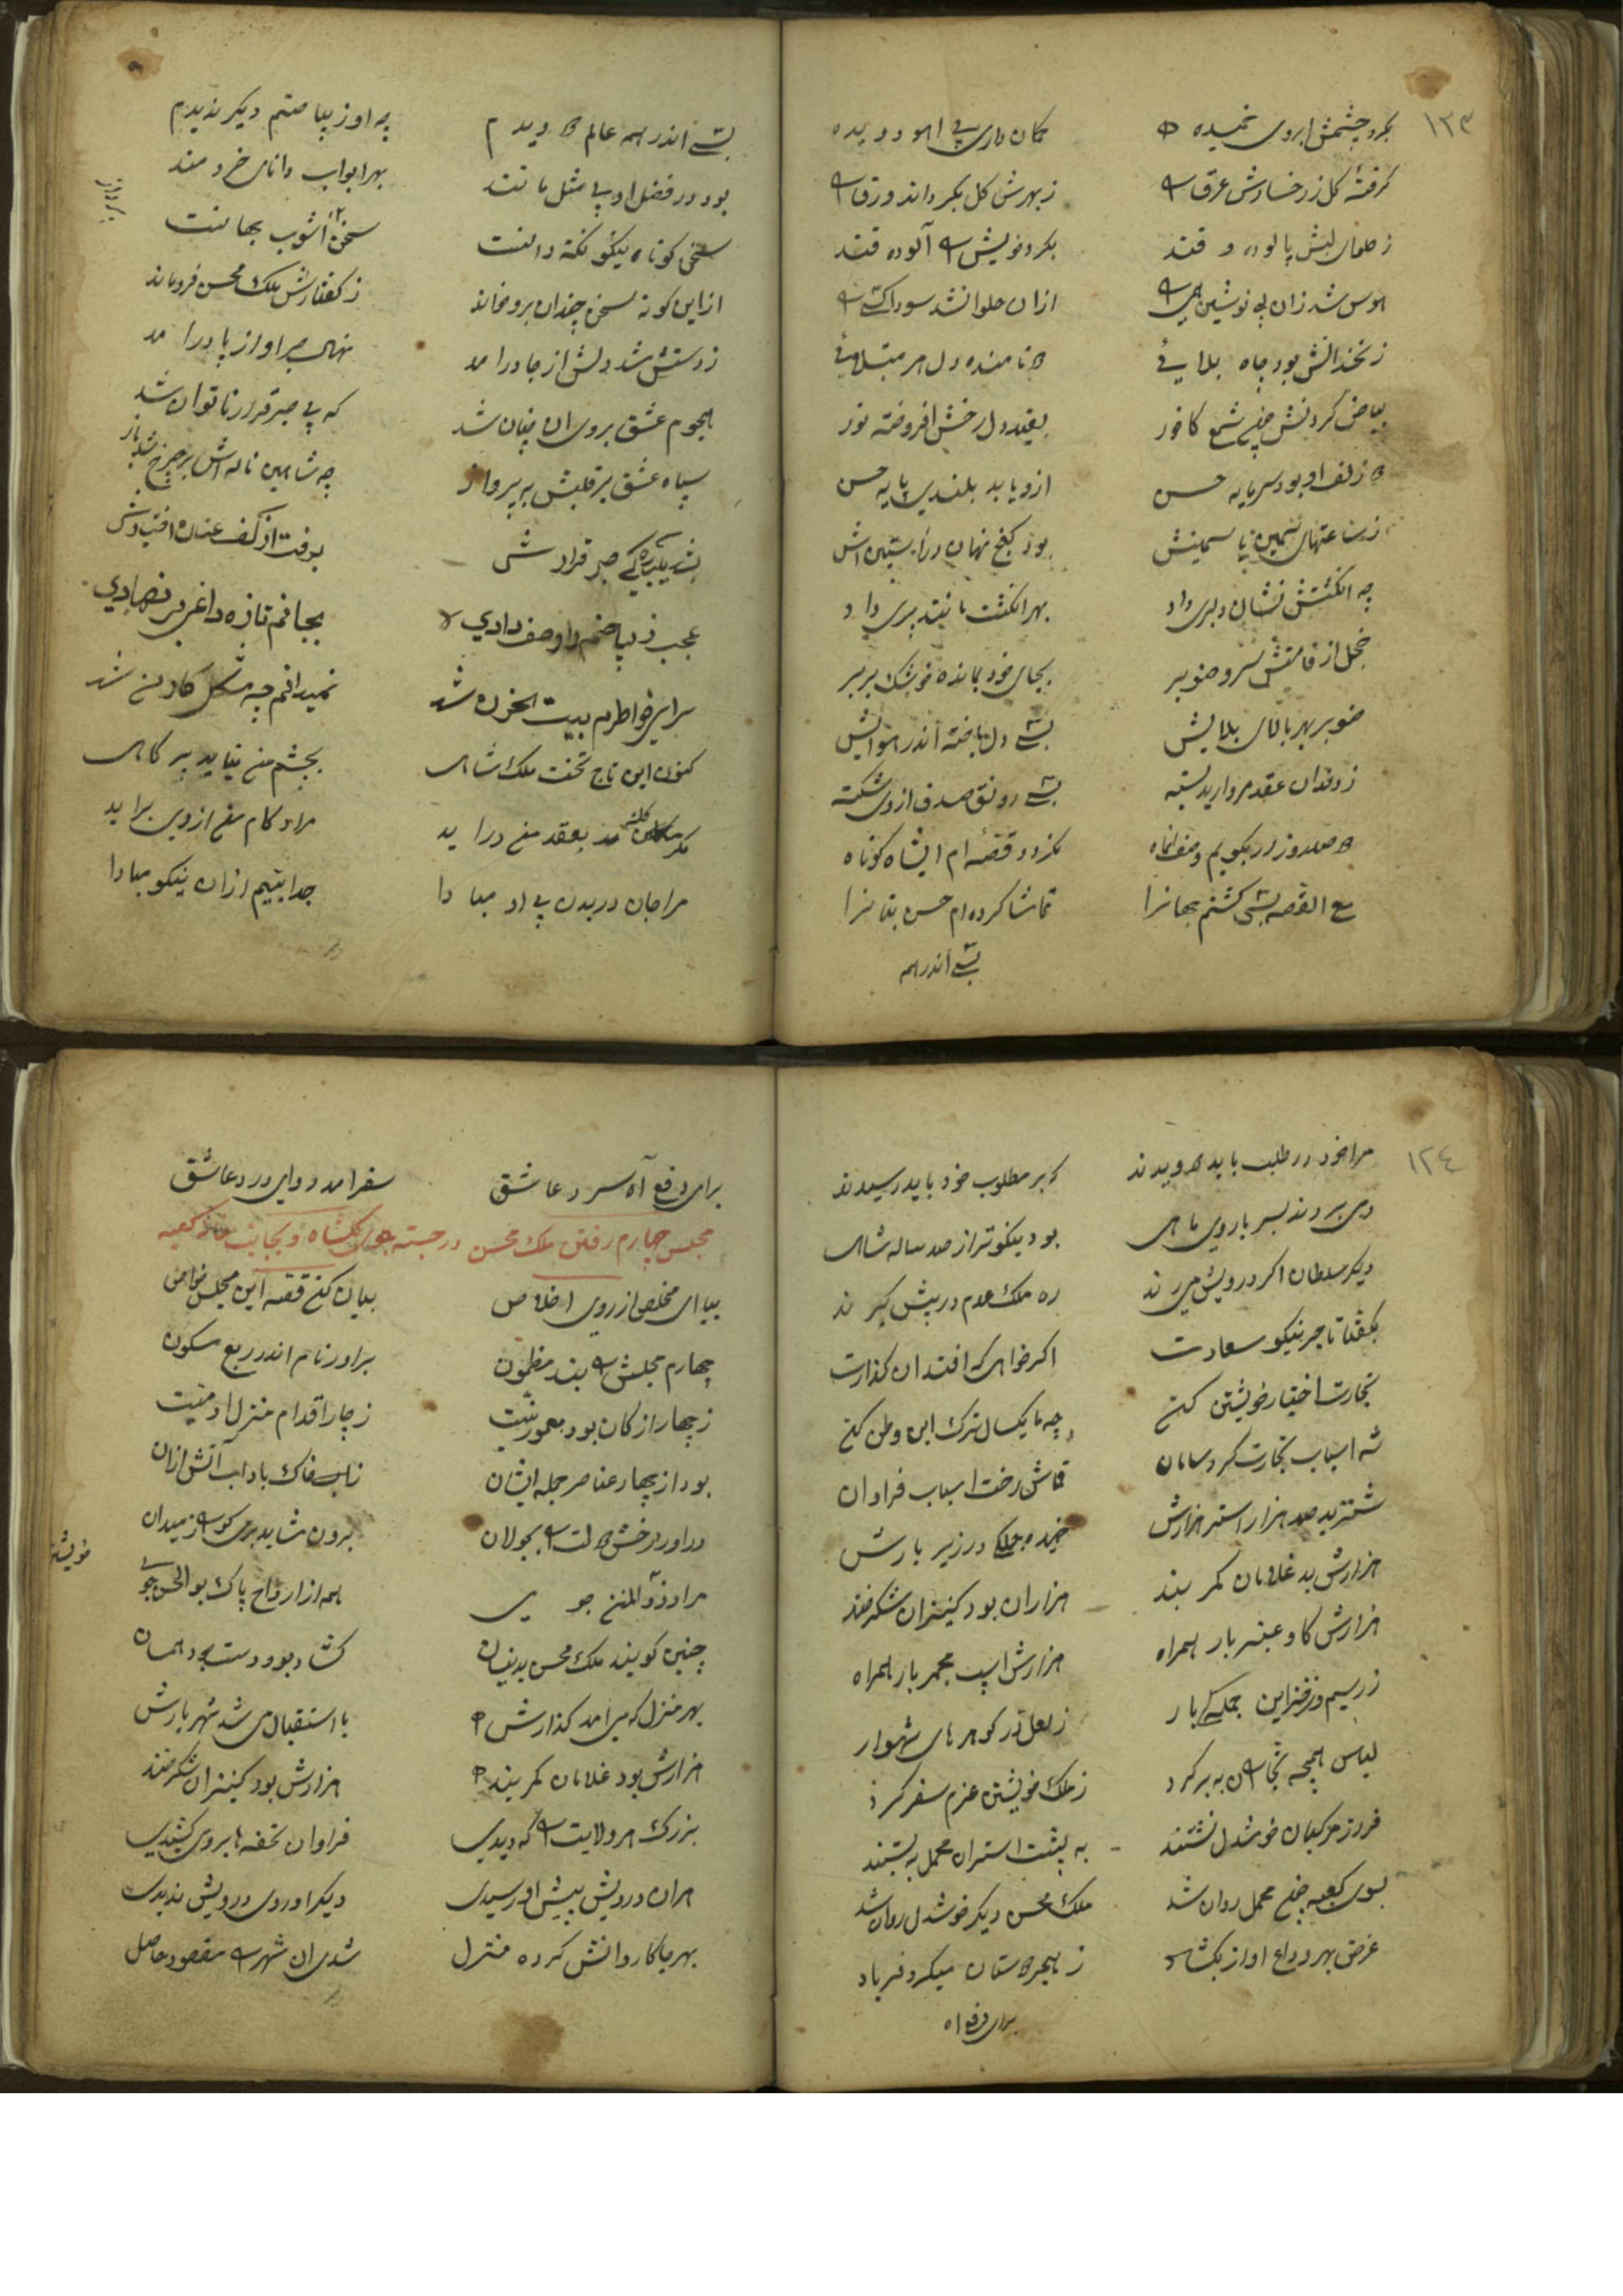 ۱۲۳
بکرد چشمش ابروی خمیده کمان داری پی اهو دویده
گرفته گل ز رخسارش عرق زبهرش گل بگرداند ورق
ز حلوای لبش پالوده و قند بکرد خویش آلوده قند
هوس شد زان لب نوشین ازان حلوا نشد سودا کسی
زنخدانش بود چاه بلایی دل هر مبتلایی
بیاض گردنش چون شمع کافور دل رخش افروخته نور
زلف او بود سرمایه حسن ازو یابد بلندی پایه حسن
سیمین یا سمینش بود گنج نهان در آستینش
چه انگشتش نشان دلبری داد بهر انگشت مانند پری داد
خجل از قامتش سرو صنوبر بجای خود بمانده خوشک بربر
صنوبر بهر بالای بلایش بسی دل باخته اندر هوایش
ز دندان عقد مروارید بسته بسی رونق صدف ازوی شکسته
صد روز ار بگویم وصف انماه نگردد قصه ام ایشاه کوتاه
مع القصه بسی گشتم جهانرا تماشا کرده ام حسن بتانرا
بسی اندر همه
بسی اندر همه عالم دویدم چه او زیبا صنم دیگر ندیدم
بود در فضل او بی مثل مانند بهر ابواب دانای خردمند
سخن کوتاه نیکو نکته دانست سخن آشوب جهانست
ازاین گونه سخن چندان بروخواند ز گفتارش ملک محسن فروماند
ز دستش شد دلش از جا درامد نهال صبر او از پا درامد
هجوم عشق بروی ان چنان شد که بی صبر و قرار ناتوان شد
سپاه عشق بر قلبش به پرواز چه شاهین ناله اش بر چرخ
بشد یکبارگی صبر قرارش برفت از کف عنان اختیارش
عجب زیبا صنم را وصف دادی بجانم تازه داغی بر نهادی
سرای خواطرم بیت الحزن شد نمیدانم چه مشکل کار من شد
کنون این تاج تخت ملک شاهی بچشم من نیاید پر کاهی
مگر بعقد من دراید مراد کام من ازوی براید
مرا جان در بدن بی او مبادا جدا بینیم ازان نیکو مبادا
۱۲٤
مرا خود در طلب باید دویدند که بر مطلوب خود باید رسیدند
دمی بردند بسر با روی ماهی بود نیکوتر از صد ساله شاهی
دیگر سلطان اگر درویش میرند ره ملک عدم در پیش گیرند
بگفتا تاجر نیکو سعادت اگر خواهی که افتد ان گذارت
تجارت اختیار خویشتن کن چه ما یکسال ترک این وطن کن
شه اسباب تجارت کرد سامان قماش رخت اسباب فراوان
شتر بد صد هزار استر هزارش خمیده جملگی در زیر بارش
هزارش بد غلامان کمر بند هزاران بود کنیزان شکرخند
هزارش گاو عنبر بار همراه هزارش اسپ مجمر بار همراه
ز زر سیم جملگی بار ز لعل در گوهرهای شهوار
لباس همچه به بر کرد ز ملک خویشتن عزم سفر کرد
فراز مرکبان خوشدل نشستند به پشت استران محمل به بستند
بسوی کعبه محمل روان شد ملک محسن دیگر خوشدل روان شد
غرض بهر وداع او از میکرد فریاد
برای دفع اه
برای دفع آه سرد عاشق سفر امد دوای درد عاشق
مجلس چهارم رفتن ملک محسن در جسته بجانب کعبه
بیا ای مخلص از روی اخلاص بیان کن قصه این مجلس خاص
چهارم مجلس بند مظمون براور نام اندر ربع مسکون
ز چهار ارکان بود
بود از چهار عناصر جمله ایشان خاک باد اب آتش
دراور رخش بجولان برون میدان
خویشتن
مراد ذو المنن جوی همه از ارواح پاک بو الحسن جوی
چنین گویند ملک محسن بدینسان گشاد بود دست همسان
بهر منزل که می امد گذارش با استقبال می شد شهریارش
هزارش بود غلامان کمر بند هزارش بود کنیزان شکرخند
بزرگ هر ولایت که دیدی فراوان تحفه ها بروی کشیدی
هران درویش پیش او رسیدی دیگر او روی درویش ندیدی
بهر جا کاروانش کرده منزل شدی ان شهر مقصود حاصل